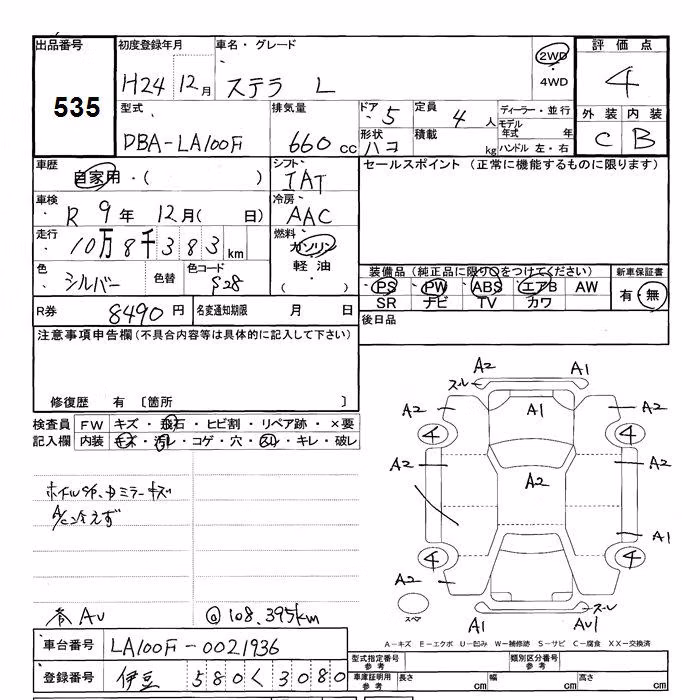 出品番号 初度登録年月 車名・グレード 評価点
535 H24 12月 ステラ L 2WD 4WD 4
型式 排気量 ドア 5 定員 4人 ディーラー・並行 外装 内装
DBA-LA100F 660cc 形状 ハコ 積載 kg モデル年式 年 ハンドル 左・右 C B
車歴 自家用・( ) シフト IAT セールスポイント (正常に機能するものに限ります)
車検 R 9年 12月( 日) 冷房 AAC
走行 10万8千383km 燃料 ガソリン
色 シルバー 色替 色コード S28 軽油・( )
装備品(純正品に限り○をつけてください) 新車保証書
PS PW ABS エアB AW 有・無
SR ナビ TV カワ
R券 8490円 名変通知期限 月 日 後日品
注意事項申告欄(不具合内容等は具体的に記入して下さい)
修復歴 有 〔箇所 〕
検査員 FW キズ・飛石・ヒビ割・リペア跡・×要
記入欄 内装 キズ・汚レ・コゲ・穴・スレ・キレ・破レ
ホイルキズ、ドミラーキズ
A/C冷えず
AU @108,395km
A2 A1
スレ
A2 A1 A2
4 4
A2 A2 A2
A1
4 4
A2
スペア A1 AU1 スレ
A-キズ E-エクボ U-凹み W-補修跡 S-サビ C-腐食 XX-交換済
車台番号 LA100F-0021936 型式指定番号 参考 類別区分番号 参考
登録番号 伊豆 580く3080 車庫証明用 参考 長さ cm 幅 cm 高さ cm